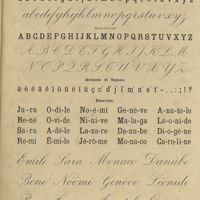 abcdefghijklmnopqrstuvxyz
ABCDEFGHIJKLMNOPQRSTUVXYZ
ABCDEFGHIJKLM
NOPQRSTUVXYZ
Accents et Signes.
Exercice.
Ju-ra O-di-le No-é-mi Ge-nè-ve A-na-to-le
Re-né O-vi-de Ni-ni-ve Ma-la-ga Lé-o-ni-de
Sa-ra A-dè-le La-za-re Da-nu-be Di-o-gè-ne
Re-mi É-mi-le Jé-rô-me Mo-na-co Ca-ro-li-ne
Emile Sara Monaco Danube
Bone Noémi Genève Léonide